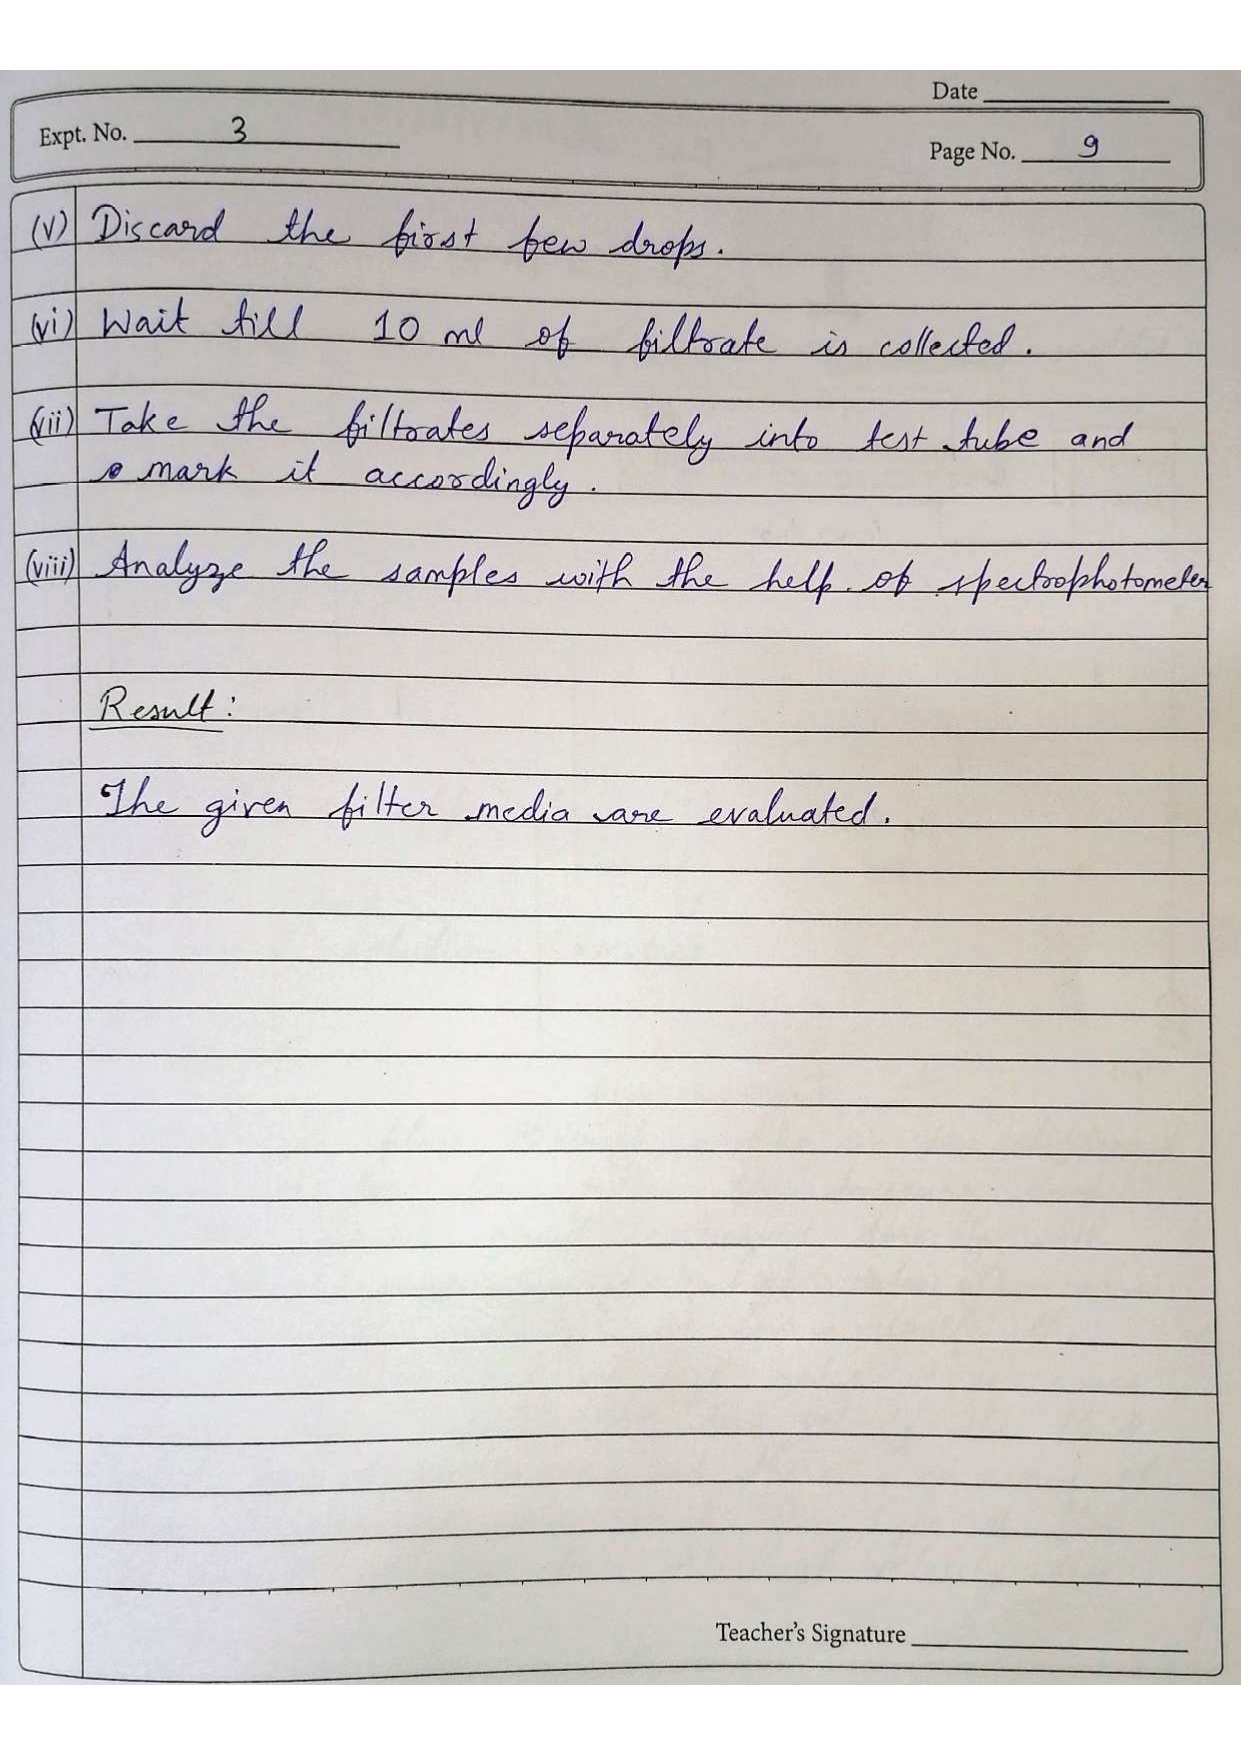 Date
Expt. No. 3
Page No. 9
(v) Discard the first few drops.
(vi) Wait till 10 ml of filtrate is collected.
(vii) Take the filtrates separately into test tube and
mark it accordingly.
(viii) Analyze the samples with the help of spectrophotometer
Result:
The given filter media are evaluated.
Teacher's Signature